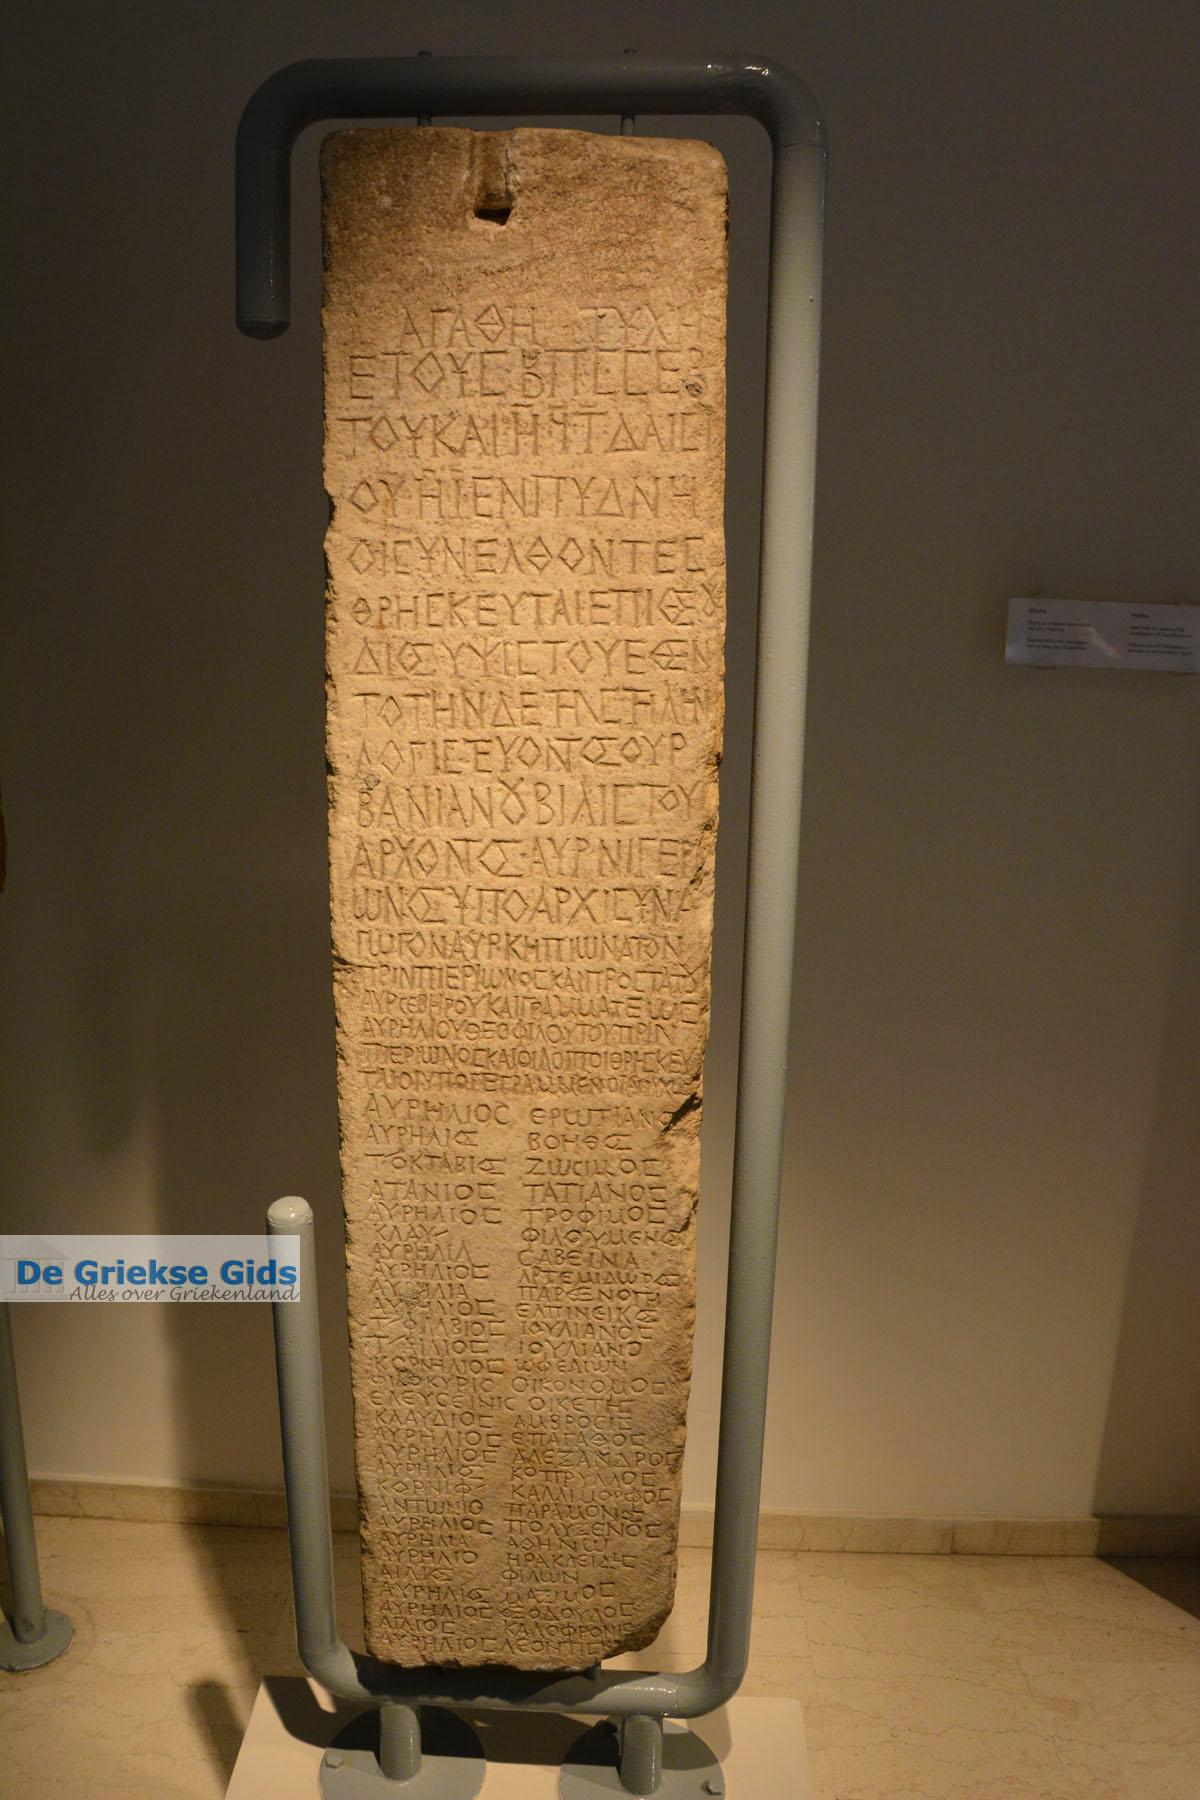 ΑΓΑΘΗ ΤΥΧΗ
ΕΤΟΥΣ ΒΠΣ ΣΕΒ
ΤΟΥ ΚΑΙ Η ϤΤ ΔΑΙΣΙ
ΟΥ ΗΙ ΕΝ ΠΥΔΝΗ
ΟΙ ΣΥΝΕΛΘΟΝΤΕΣ
ΘΡΗΣΚΕΥΤΑΙ ΕΠΙ ΘΕΟΥ
ΔΙΟΣ ΥΨΙΣΤΟΥ ΕΘΕΝ
ΤΟ ΤΗΝΔΕ ΤΗΝ ΣΤΗΛΗΝ
ΛΟΓΙΣΤΕΥΟΝΤΟΣ ΟΥΡ
ΒΑΝΙΑΝΟΥ ΒΙΛΙΣΤΟΥ
ΑΡΧΟΝΤΟΣ ΑΥΡ ΝΙΓΕΡΙ
ΩΝΟΣ ΥΠΟ ΑΡΧΙΣΥΝΑ
ΓΩΓΟΝ ΑΥΡ ΚΗΠΙΩΝΑ ΤΟΝ
ΠΡΙΝ ΠΙΕΡΙΩΝΟΣ ΚΑΙ ΠΡΟΣΤΑΤΟΥ
ΑΥΡ ΣΕΒΗΡΟΥ ΚΑΙ ΓΡΑΜΜΑΤΕΩΣ
ΑΥΡΗΛΙΟΥ ΘΕΟΦΙΛΟΥ ΤΟΥ ΠΡΙΝ
ΠΙΕΡΙΩΝΟΣ ΚΑΙ ΟΙ ΛΟΙΠΟΙ ΘΡΗΣΚΕΥ
ΑΥΡΗΛΙΟΣ ΕΡΩΤΙΑΝΟΣ
ΑΥΡΗΛΙΟΣ ΒΟΗΘΟΣ
Τ ΟΚΤΑΒΙΟΣ ΖΩΣΙΜΟΣ
ΑΤΑΝΙΟΣ ΤΑΤΙΑΝΟΣ
ΑΥΡΗΛΙΟΣ ΤΡΟΦΙΜΟΣ
ΚΛΑΥ ΦΙΛΟΥΜΕΝΟΣ
ΑΥΡΗΛΙΑ ΣΑΒΕΙΝΑ
ΑΥΡΗΛΙΟΣ ΑΡΤΕΜΙΔΩΡΟΣ
ΑΥΡΗΛΙΑ
ΑΥΡΗΛΙΟΣ ΕΛΠΙΝΕΙΚΟΣ
Τ ΦΛΑΒΙΟΣ ΙΟΥΛΙΑΝΟΣ
ΙΟΥΛΙΑΝΟ
ΚΟΡΝΗΛΙΟΣ ΩΦΕΛΙΩΝ
ΦΙΛΟΚΥΡΙΟΣ ΟΙΚΟΝΟΜΟΣ
ΕΛΕΥΣΕΙΝΙΟΣ ΟΙΚΕΤΗΣ
ΚΛΑΥΔΙΟΣ ΑΜΒΡΟΣΙΣ
ΑΥΡΗΛΙΟΣ ΕΠΑΓΑΘΟΣ
ΑΥΡΗΛΙΟΣ ΑΛΕΞΑΝΔΡΟΣ
ΑΥΡΗΛΙΟΣ ΚΟΠΡΥΛΛΟΣ
ΚΑΛΛΙΜΟΡΦΟΣ
ΑΝΤΩΝΙΟ ΠΑΡΑΜΟΝΟΣ
ΑΥΡΗΛΙΟΣ ΠΟΛΥΞΕΝΟΣ
ΑΥΡΗΛΙΑ ΑΘΗΝΩ
ΑΥΡΗΛΙΟ ΗΡΑΚΛΕΙΔΗΣ
ΑΙΛΙΟΣ ΦΙΛΩΝ
ΑΥΡΗΛΙΟΣ ΜΑΞΙΜΟΣ
ΑΥΡΗΛΙΟΣ ΘΕΟΔΟΥΛΟΣ
ΚΑΛΟΦΡΟΝΙΣ
ΑΥΡΗΛΙΟΣ ΛΕΟΝΤΙΣΚ
De Griekse Gids
Alles over Griekenland